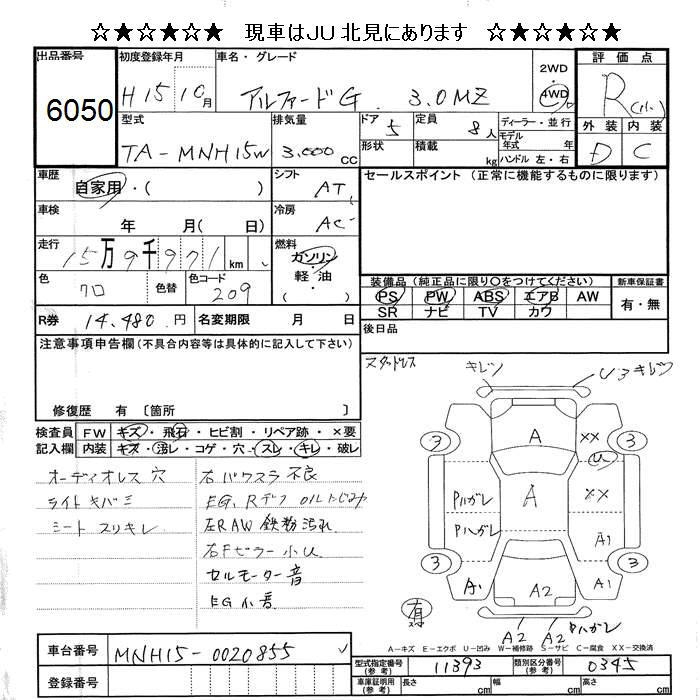 ☆★☆★☆ 現車はJU北見にあります ☆★☆★☆
出品番号 初度登録年月 車名・グレード 2WD・4WD 評価点
6050 H15 10月 アルファードG 3.0MZ R(小)
型式 排気量 ドア 5 定員 8人 ディーラー・並行 外装 内装
TA-MNH15W 3,000CC 形状 積載 kg モデル年式 年 ハンドル 左・右 D C
車歴 自家用・( ) シフト AT セールスポイント (正常に機能するものに限ります)
車検 年 月( 日) 冷房 AC
走行 15万9千971km 燃料 ガソリン・軽油・( )
色 クロ 色替 色コード 209 装備品 (純正品に限り○をつけてください) 新車保証書
PS PW ABS エアB AW 有・無
SR ナビ TV カワ
R券 14,480円 名変期限 月 日 後日品
注意事項申告欄(不具合内容等は具体的に記入して下さい) スタッドレス
キレツ U3キレツ
修復歴 有 [箇所 ]
検査員 FW キズ・飛石・ヒビ割・リペア跡・×要
記入欄 内装 キズ・汚レ・コゲ・穴・スレ・キレ・破レ
オーディオレス 穴 右パワスラ不良
ライトキバミ EG,Rデフ OILにじみ
シートスリキレ 左RAW鉄粉汚れ
右Fピラー小U
セルモーター音
EG小音
A XX
3 3
U
Pハガレ A XX
Pハガレ A1
3 3
A1 A2 A1
有 A2 A2 Pハガレ
A-キズ E-エクボ U-凹み W-補修跡 S-サビ C-腐食 XX-交換済
車台番号 MNH15-0020855
型式指定番号(参考) 11393 類別区分番号(参考) 0345
登録番号 車庫証明用(参考) 長さ cm 幅 cm 高さ cm